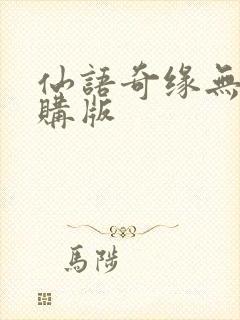 仙語奇缘無
購版
馬陟